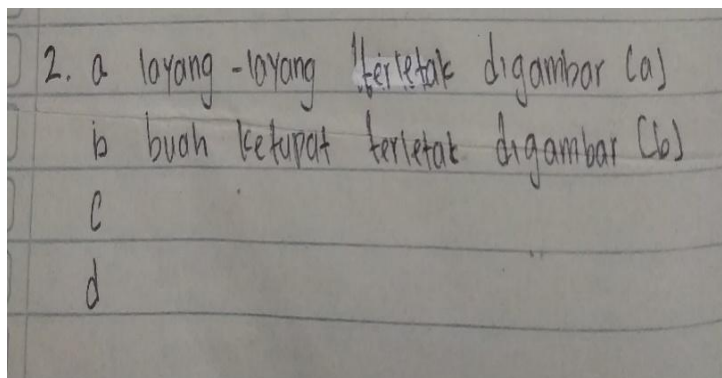 2. a layang-layang terletak digambar (a)
b buah ketupat terletak digambar (b)
c
d